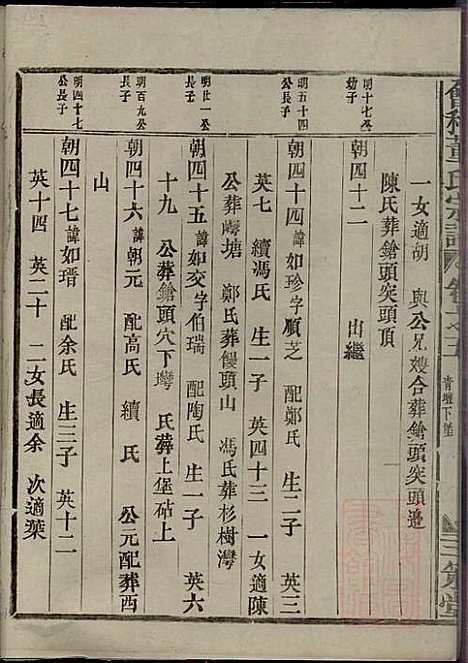 會稽董氏宗譜 卷之五 青壇下堡 三策堂
一女適胡 與公兄嫂合葬鎗頭突頭邉
陳氏葬鎗頭突頭頂
明十七公幼子
朝四十二 出繼
明五十四公長子
朝四十四 諱如珍字順芝 配鄭氏 生二子 英三
英七 續馮氏 生一子 英四十三 一女適陳
公葬塘 鄭氏葬饅頭山 馮氏葬杉樹灣
明廿一公長子
朝四十五 諱如交字伯瑞 配陶氏 生一子 英六
十九 公葬鎗頭穴下灣 氏葬上堡砧上
明百九公長子
朝四十六 諱朝元 配高氏 續 氏 公元配葬西
山
明四十七公長子
朝四十七 諱如瑨 配余氏 生三子 英十二
英十四 英二十 二女長適余 次適葉